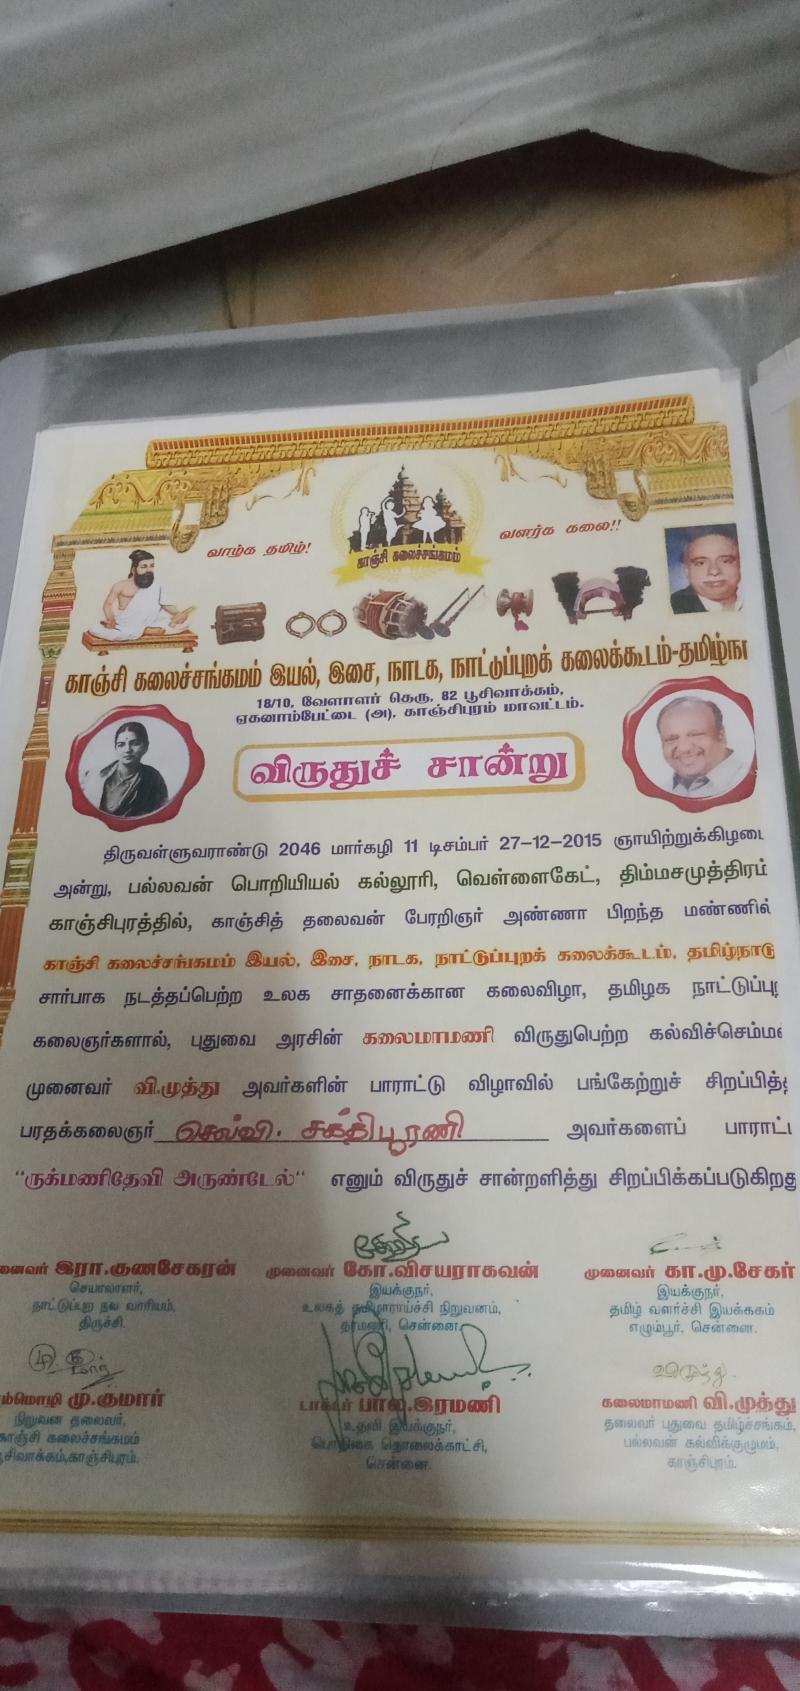 வாழ்க தமிழ்!
வளர்க கலை!!
காஞ்சி கலைச்சங்கமம்
காஞ்சி கலைச்சங்கமம் இயல், இசை, நாடக, நாட்டுப்புறக் கலைக்கூடம்-தமிழ்நா
18/10, வேளாளர் தெரு, 82 பூசிவாக்கம்,
ஏகனாம்பேட்டை (அ), காஞ்சிபுரம் மாவட்டம்.
விருதுச் சான்று
திருவள்ளுவராண்டு 2046 மார்கழி 11 டிசம்பர் 27-12-2015 ஞாயிற்றுக்கிழமை
அன்று, பல்லவன் பொறியியல் கல்லூரி, வெள்ளைகேட், திம்மசமுத்திரம்
காஞ்சிபுரத்தில், காஞ்சித் தலைவன் பேரறிஞர் அண்ணா பிறந்த மண்ணில்
காஞ்சி கலைச்சங்கமம் இயல், இசை, நாடக, நாட்டுப்புறக் கலைக்கூடம், தமிழ்நாடு
சார்பாக நடத்தப்பெற்ற உலக சாதனைக்கான கலைவிழா, தமிழக நாட்டுப்பு
கலைஞர்களால், புதுவை அரசின் கலைமாமணி விருதுபெற்ற கல்விச்செம்ம
முனைவர் வி.முத்து அவர்களின் பாராட்டு விழாவில் பங்கேற்றுச் சிறப்பித்
பரதக்கலைஞர் செல்வி. சக்திபூரணி அவர்களைப் பாராட்
"ருக்மணிதேவி அருண்டேல்" எனும் விருதுச் சான்றளித்து சிறப்பிக்கப்படுகிறது
னைவர் இரா.குணசேகரன்
செயலாளர்,
நாட்டுப்புற நல வாரியம்,
திருச்சி.
முனைவர் கோ.விசயராகவன்
இயக்குநர்,
உலகத் தமிழாராய்ச்சி நிறுவனம்,
தரமணி, சென்னை.
முனைவர் கா.மு.சேகர்
இயக்குநர்,
தமிழ் வளர்ச்சி இயக்ககம்
எழும்பூர், சென்னை.
ம்மொழி மு.குமார்
நிறுவன தலைவர்,
காஞ்சி கலைச்சங்கமம்
பூசிவாக்கம்,காஞ்சிபுரம்.
டாக்டர் பால இரமணி
உதவி இயக்குநர்,
பொதிகை தொலைக்காட்சி,
சென்னை.
கலைமாமணி வி.முத்து
தலைவர் புதுவை தமிழ்ச்சங்கம்,
பல்லவன் கல்விக்குழுமம்,
காஞ்சிபுரம்.